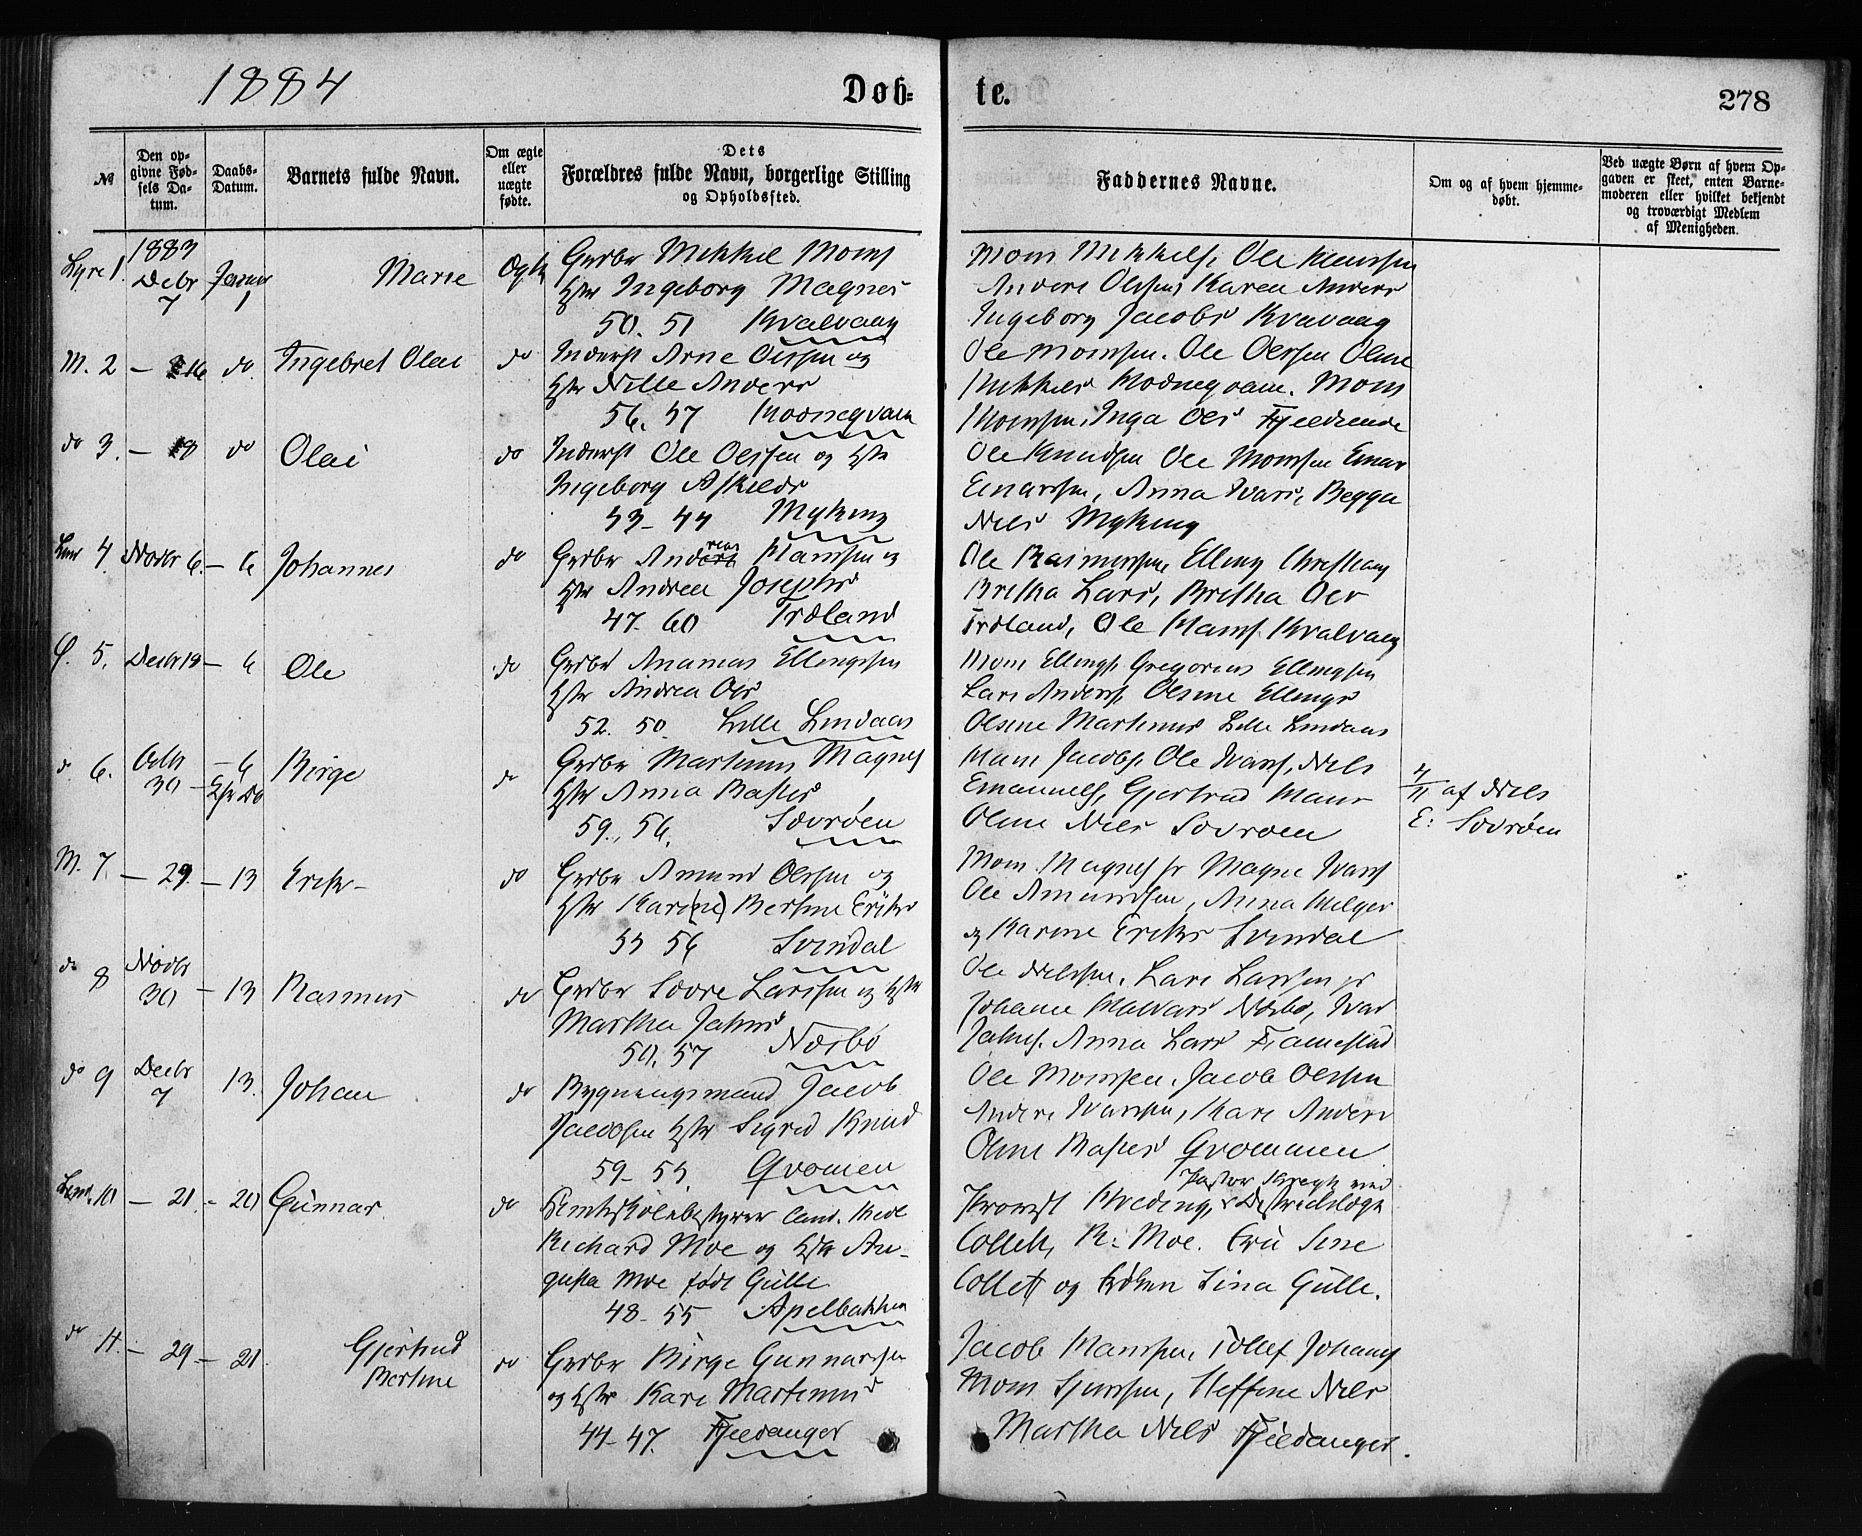 1884
Døb=
te.
278
№
Den op-
givne Fød-
sels Da-
tum.
Daabs-
Datum.
Barnets fulde Navn.
Om ægte
eller
uægte
fødte.
Dets
Forældres fulde Navn, borgerlige Stilling
og Opholdssted.
Faddernes Navne.
Om og af hvem hjemme-
døbt.
Ved uægte Børn af hvem Op-
gaven er skeet, enten Barne-
moderen eller hvilket bekjendt
og troværdigt Medlem
af Menigheden.
1883
Lyre 1. Decbr 7 Januar 1 Marie Ægte
Grdbr Mikkel Moms
Hstr Ingeborg Magnes
50. 51 Kvalvaag
Mom Mikkels. Ole Hanssen
Anders Olssen, Karen Anders
Ingeborg Jacobs Kvavaag
M. 2 — 16 do Ingebret Olai do
Inderst Arne Olssen og
Hstr Nille Anders
56. 57
Ole Momsen. Ole Olssen Oline
Mikkels Mom
Momsen, Inga Ols
do 3. — 18 do Olai do
Inderst Ole Olssen og Hstr
Ingeborg Askilds
53 - 44 Myking
Ole Knudsen Ole Momsen Einar
Einarsen, Anna Ivars, Begga
Nils Myking
4 Novbr 6. — 6 Johannes do
Grdbr Andreas Hanssen og
Hstr Andrea Josephs
47. 60 Træland
Ole Rasmussen, Elling Christians
Britha Lars, Britha Ols
Træland, Ole Hans. Kvalvaag
5. Decbr 19 — 6 Ole do
Grdbr Ananias Ellingsen
Hstr Andrea Ols
52. 50. Lille Lindaas
Mom Ellings. Gregorius Ellingsen
Lars Anders. Olsine Ellings
Olsine Martinus Lille Lindaas
d 6. Octb 30 — 6 Børge do
Grdbr Martinus Magnes
Hstr Anna Rasmus
59., 56. Sævrøen
Hans Jacobs. Ole Ivars. Nils
Emanuels, Gjertrud Mons
Oline Nils Sævrøen
4/11 af Nils
E: Sævrøen
M. 7. — 29. — 13 Erik — do
Grdbr Amund Olssen og
Hstr Kari(ne) Bertine Eriks
53 56 Svindal
Mom. Magnes. jr Magne Ivars
Ole Amundsen, Anna Helges
og Karine Eriks Svindal
do 8 Novbr 30 — 13 Rasmus do
Grdbr Sævre Larssen og Hstr
Martha Jahns
50. 57 Næsbø
Ole Nilssen. Lars Larssen jr
Johanne Halvars Næsbø, Ivar
Jahns. Anna Lars Framestad
do 9 Decbr 7 13. Johan do
Bygningsmand Jacob
Jacobsen Hstr Sigrid Knud
59 - 53. Qvomen
Ole Momsen. Jacob Olssen
Anders Ivarssen, Kari Anders
Oline Qvommen
10 — 21 - 20 Gunnar do
Amtsskolebestyrer Cand. theol
Richard Moe og Hstr Au-
gusta Moe født Gülle
48 - 55 Apelbakken
Pastor Kragh
Provst Hveding, Districtslæge
Collett, R. Moe. Fru Sine
Collett og Frøken Lina Gülle.
do 11. — 29 — 21. Gjertrud
Bertine do
Grdbr Børge Gunnarsen
og Hstr Kari Martinus
44 - 47. Fjeldanger
Jacob Hanssen, Tollef Johans
Mom Sjurssen, Steffine Nils
Martha Nils Fjeldanger.